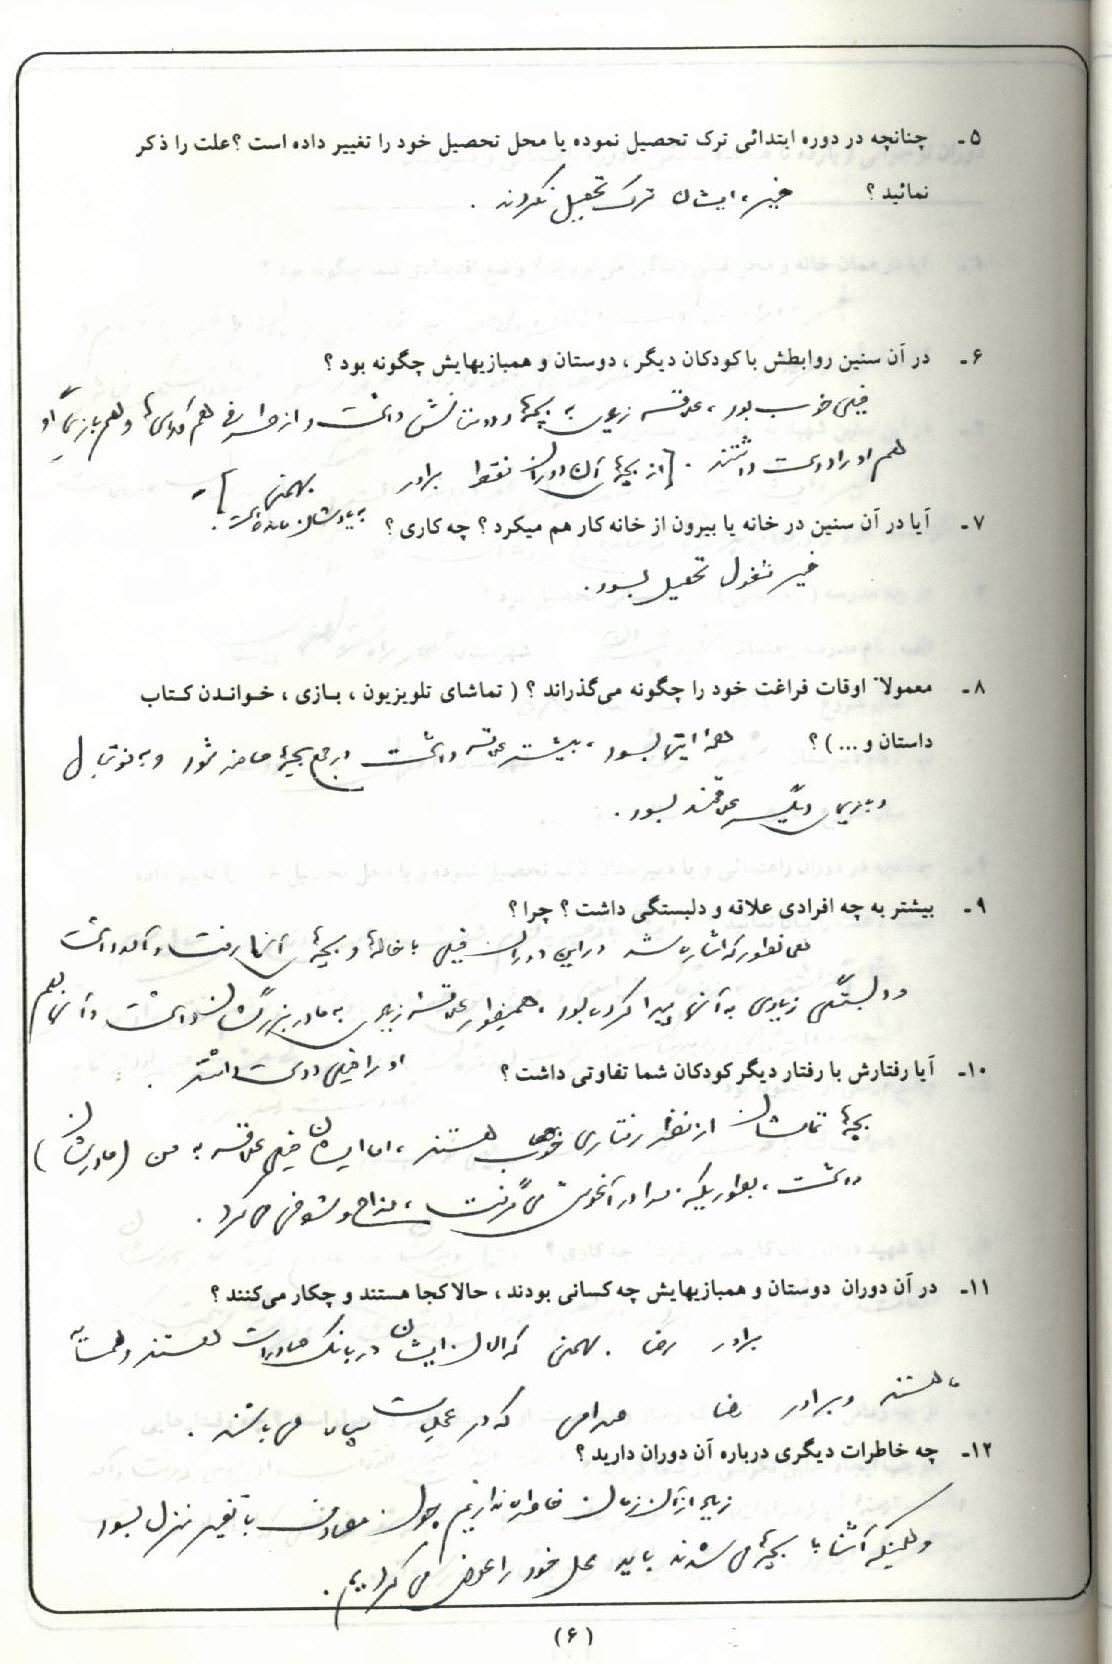 ۵ـ چنانچه در دوره ابتدائی ترک تحصیل نموده یا محل تحصیل خود را تغییر داده است ؟ علت را ذکر
نمائید ؟ خیر، ایشان ترک تحصیل نکردند .
۶ـ در آن سنین روابطش با کودکان دیگر ، دوستان و همبازیهایش چگونه بود ؟
خیلی خوب بود ، علاقه زیادی به بچه‌ها و دوستانش داشت و از طرفی هم و هم بازیهای او
هم او را دوست داشتند . [ از بچه‌های آن دوران فقط برادر بهمنی
به یادشان مانده است . ]
۷ـ آیا در آن سنین در خانه یا بیرون از خانه کار هم میکرد ؟ چه کاری ؟
خیر مشغول تحصیل بود .
۸ـ معمولاً اوقات فراغت خود را چگونه می‌گذراند ؟ ( تماشای تلویزیون ، بازی ، خواندن کتاب
داستان و ... ) ؟ همه اینها بود ، بیشتر علاقه داشت در جمع بچه‌ها حاضر شود و به فوتبال
و بازیهای دیگر علاقمند بود .
۹ـ بیشتر به چه افرادی علاقه و دلبستگی داشت ؟ چرا ؟
همانطور که اشاره شد در این دوران خیلی با خاله‌ها و بچه‌های آنها رفت و آمد داشت
و دلبستگی زیادی به آنها پیدا کرده بود . همینطور علاقه زیادی به مادربزرگشان داشت و آنها هم
او را خیلی دوست داشتند .
۱۰ـ آیا رفتارش با رفتار دیگر کودکان شما تفاوتی داشت ؟
بچه‌ها تمامشان از نظر رفتاری خوب هستند ، اما ایشان خیلی علاقه به من ( مادرشان )
داشت ، بطوریکه مرا در آغوش می‌گرفت ، مزاح و شوخی می‌کرد .
۱۱ـ در آن دوران دوستان و همبازیهایش چه کسانی بودند ، حالا کجا هستند و چکار می‌کنند ؟
برادر رضا بهمنی که الان ایشان در بانک صادرات هستند و همسایه
ما هستند و برادر رضا که در عملیات سپاه می باشند .
۱۲ـ چه خاطرات دیگری درباره آن دوران دارید ؟
زیاد از آن زمان خاطره نداریم چون مصادف با تغییر منزل بود
و همینکه آشنا با بچه‌ها می شدند باید محل خود را عوض می کردیم .
(۶)